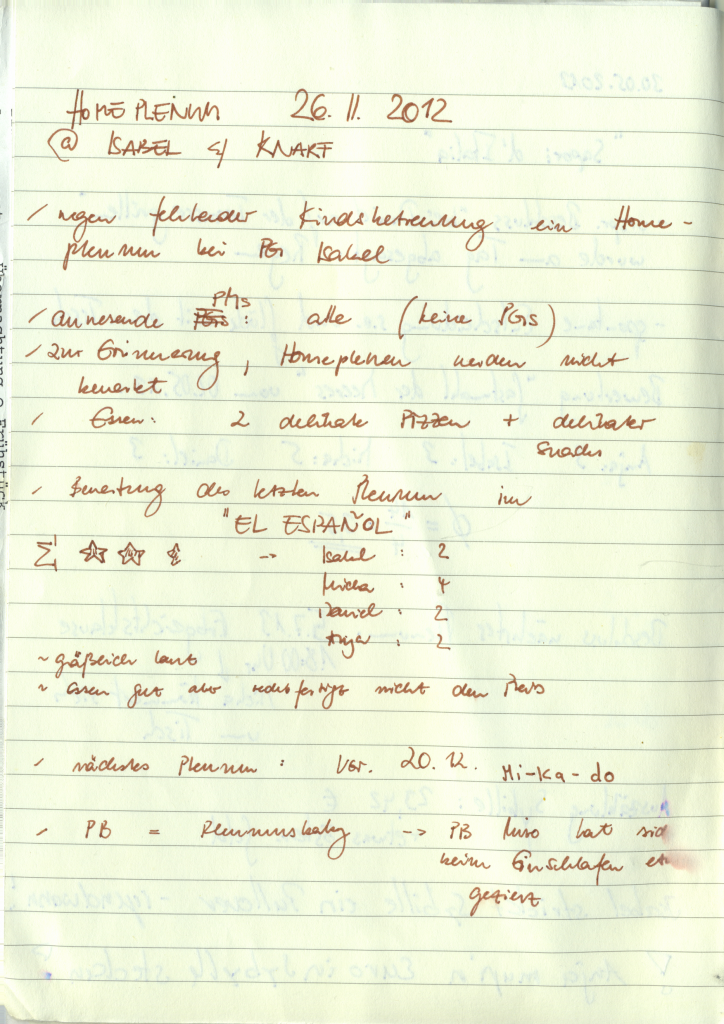 HOMEPLENUM 26.11.2012
@ ISABEL & KNARF
/ wegen fehlender Kindsbetreuung ein Home-
plenum bei PG Isabel
PMs
/ anwesende PGs : alle (keine PGs)
/ zur Erinnerung, Homeplenen werden nicht
bewertet
/ Essen: 2 delikate Pizzen + delikater
Snacks
/ Bewertung des letzten Plenum im
"EL ESPAÑOL"
Σ ☆ ☆ -> Isabel : 2
Micha : 4
David : 2
Anja : 2
~ gäßlich laut
~ essen gut aber rechtfertigt nicht den Preis
/ nächstes Plenum : Vor. 20.12. Mi-Ka-do
/ PB = Plenumsbaby -> PB Miro hat sich
beim Einschlafen
geziert
Übernachtung & Frühstück